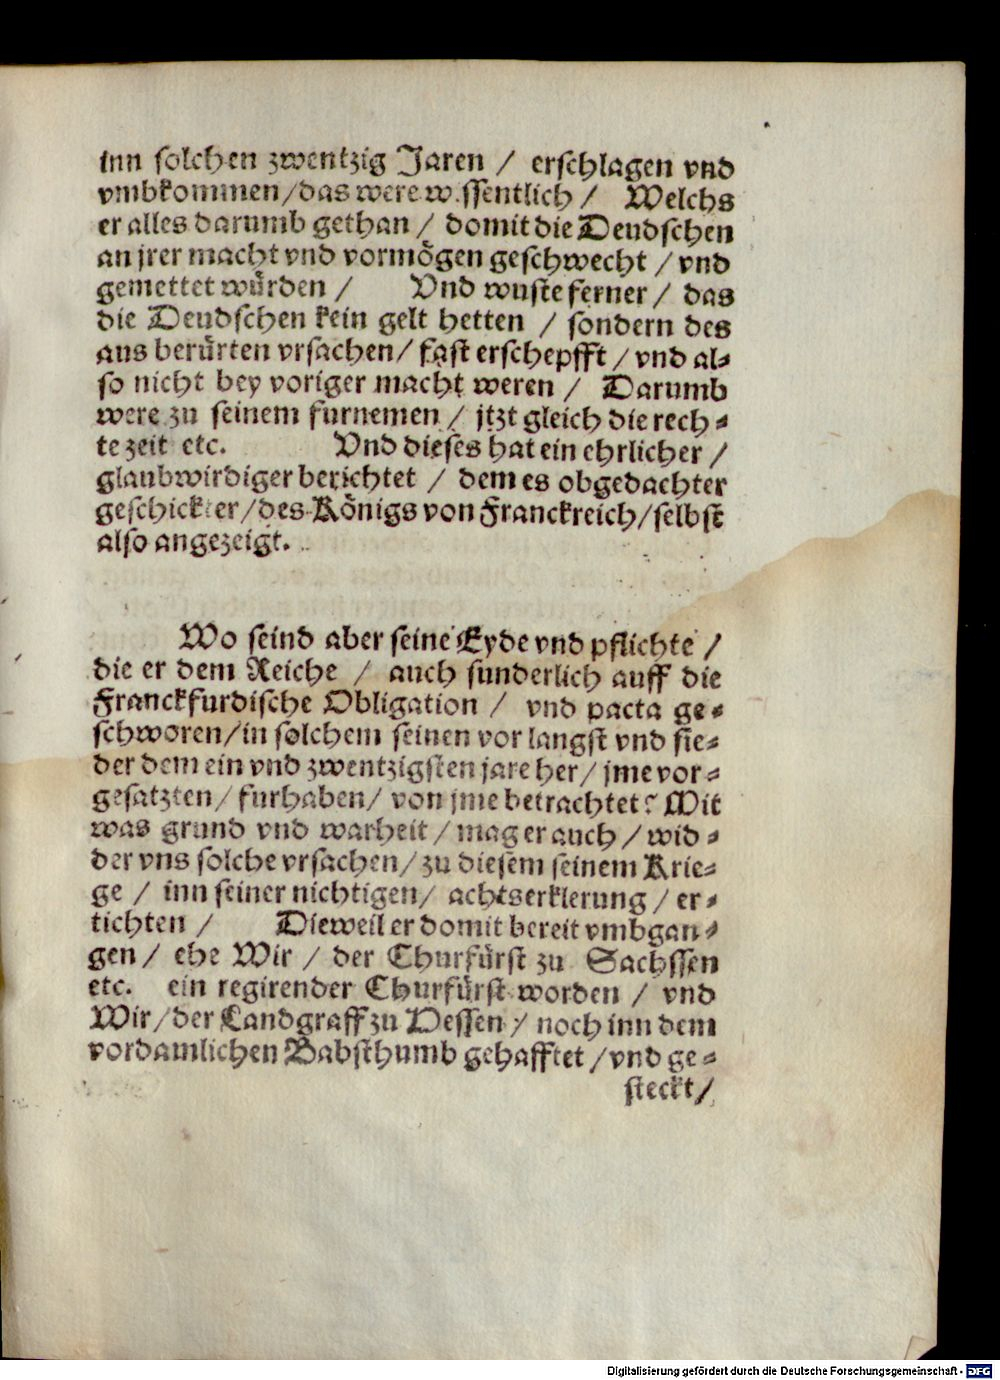 inn solchen zwentzig Jaren / erschlagen vnd
vmbkommen/das were w.ssentlich / Welchs
er alles darumb gethan / domit die Deudschen
an jrer macht vnd vormögen geschwecht / vnd
gemettet würden / Vnd wuste ferner / das
die Deudschen kein gelt hetten / sondern des
aus berürten vrsachen/ fast erschepfft / vnd al-
so nicht bey voriger macht weren / Darumb
were zu seinem furnemen / jtzt gleich die rech-
te zeit etc. Vnd dieses hat ein ehrlicher /
glaubwirdiger berichtet / dem es obgedachter
geschickter/des Königs von Franckreich/selbst
also angezeigt.
Wo seind aber seine Eyde vnd pflichte /
die er dem Reiche / auch sunderlich auff die
Franckfurdische Obligation / vnd pacta ge-
schworen/in solchem seinen vor langst vnd sie-
der dem ein vnd zwentzigsten jare her/ jme vor-
gesatzten/ furhaben/ von jme betrachtet? Mit
was grund vnd warheit / mag er auch / wid-
der vns solche vrsachen/ zu diesem seinem Krie-
ge / inn seiner nichtigen/ achtserklerung / er-
tichten / Dieweil er domit bereit vmbgan-
gen / ehe Wir / der Churfürst zu Sachssen
etc. ein regirender Churfürst worden / vnd
Wir/der Landgraff zu Hessen / noch inn dem
vordamlichen Babsthumb gehafftet /vnd ge-
steckt/
Digitalisierung gefördert durch die Deutsche Forschungsgemeinschaft - DFG